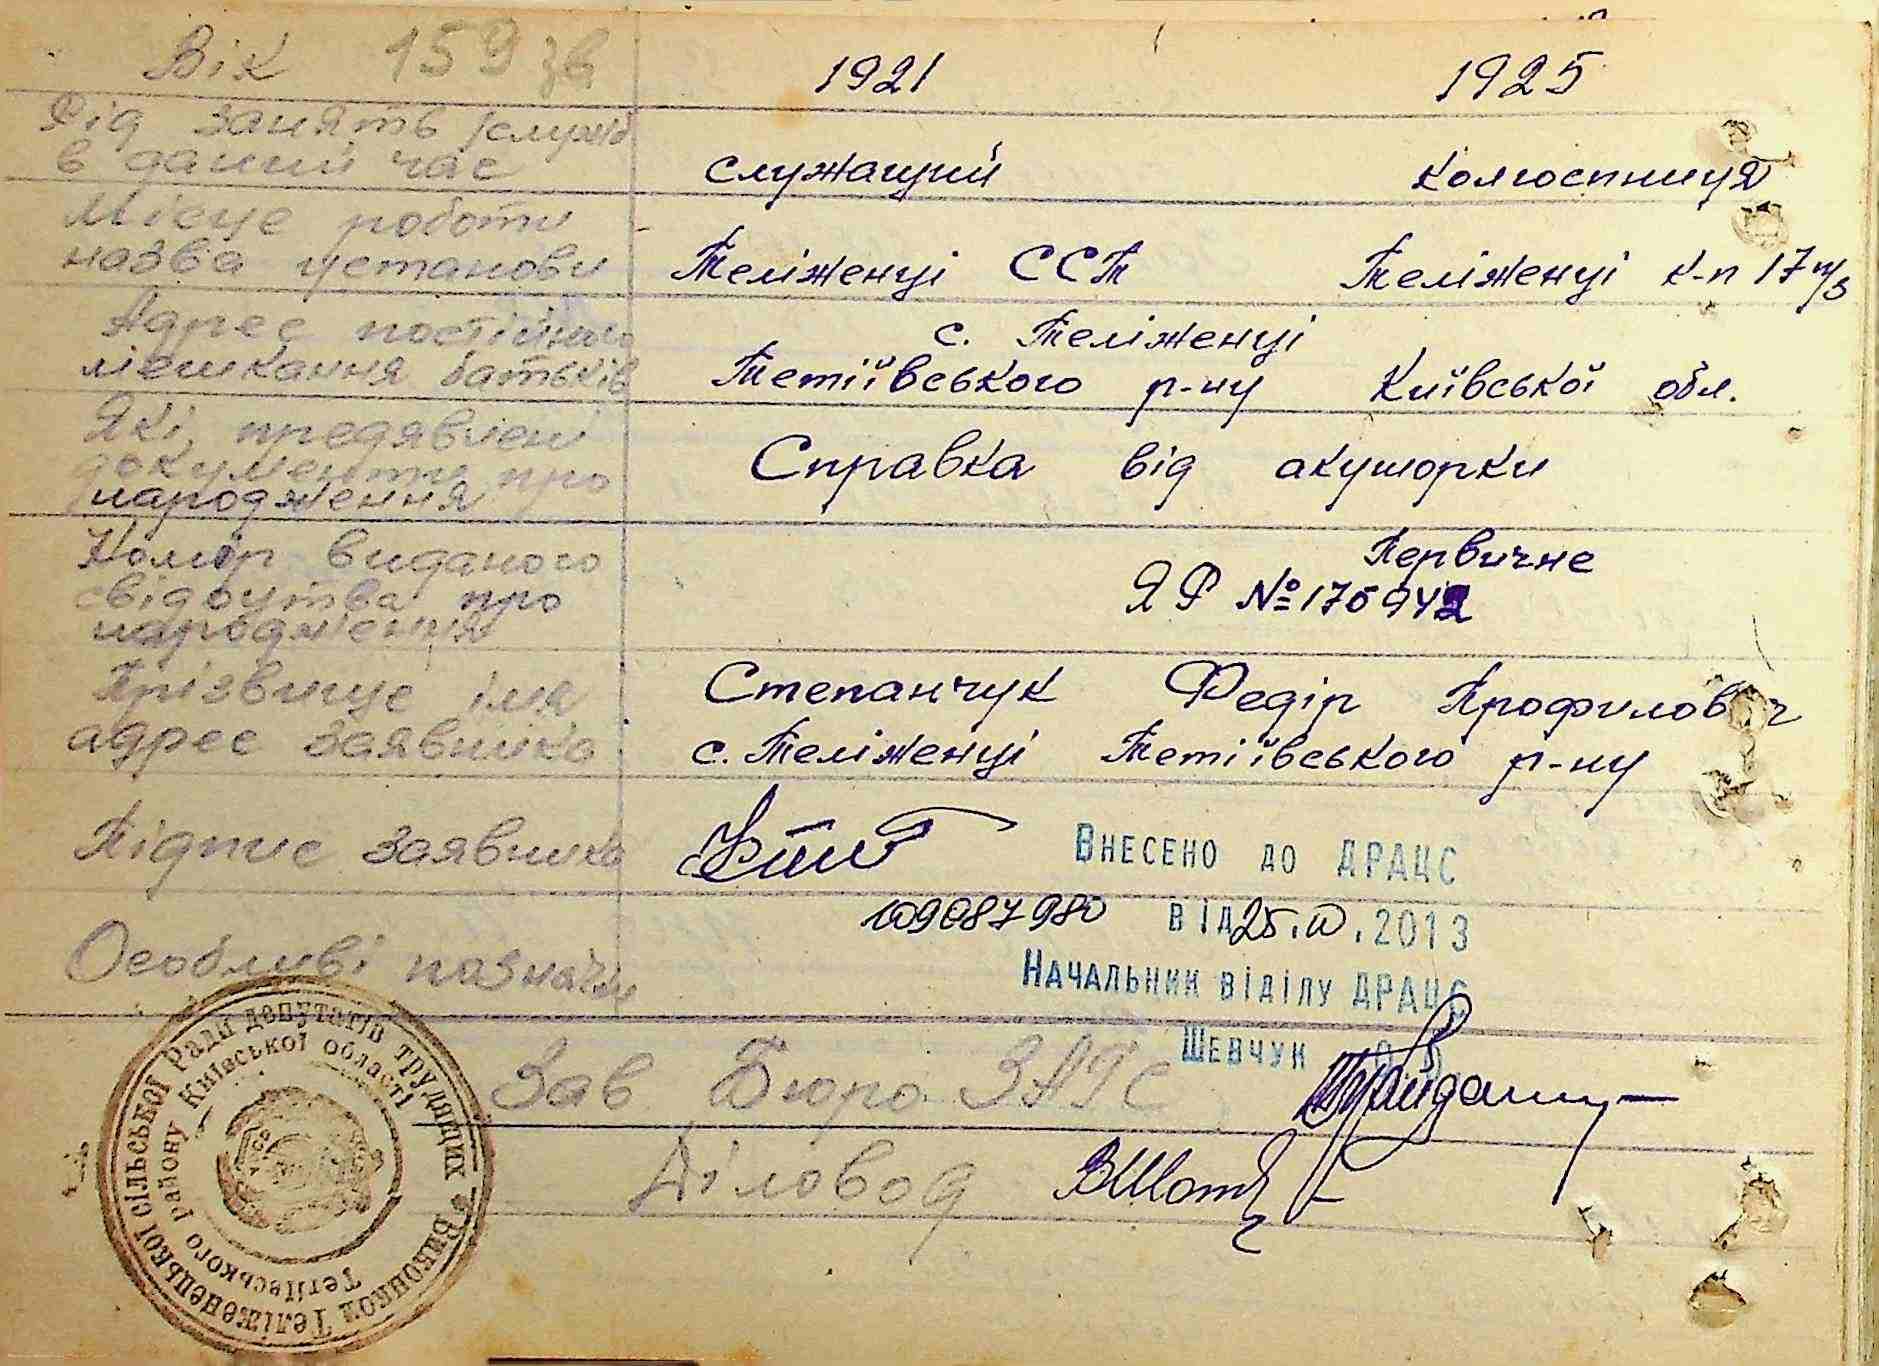 Вік 159 зв 1921 1925
Рід занять служб
в даний час служащий колгоспниця
Місце роботи
назва установи Теліженці ССТ Теліженці к-п 17 п/з
Адрес постійного с. Теліженці
мешкання батьків Тетіївського р-ну Київської обл.
Які предявлені
документи про Справка від акушорки
народження
Номер виданого Первичне
свідоцтва про ЯР № 176942
народження
Прізвище імя Степанчук Федір Профилович
адрес заявника с. Теліженці Тетіївського р-ну
Підпис заявника
Внесено до ДРАЦС
109087980 від 25.IV.2013
Особливі позначки
Начальник відділу ДРАЦС
Шевчук О.В.
Зав Бюро ЗАГС
Діловод
Виконком Теліженецької сільської Ради депутатів трудящих
Тетіївського району Київської області